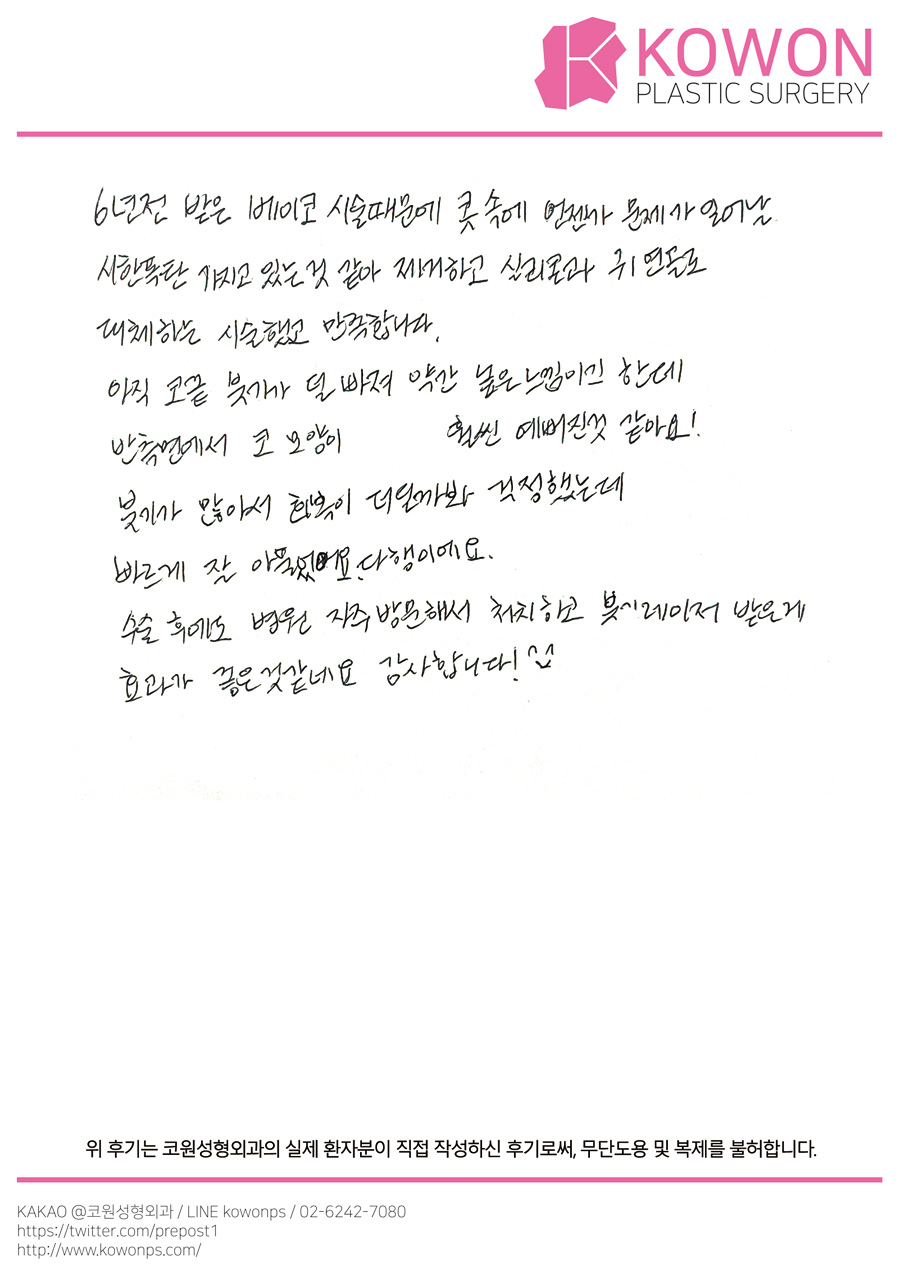 KOWON
PLASTIC SURGERY
6년전 받은 베이코 시술때문에 콧 속에 언젠가 문제가 일어날
시한폭탄 가지고 있는것 같아 제거하고 실리콘과 귀 연골로
대체하는 시술했고 만족합니다.
아직 코끝 붓기가 덜 빠져 약간 높은느낌이긴 한데
반측면에서 코 모양이 훨씬 예뻐진것 같아요!
붓기가 많아서 회복이 더딜까봐 걱정했는데
빠르게 잘 아물었어요. 다행이에요.
수술 후에도 병원 자주 방문해서 처치하고 붓기레이저 받은게
효과가 좋은것같네요 감사합니다! ^^
위 후기는 코원성형외과의 실제 환자분이 직접 작성하신 후기로써, 무단도용 및 복제를 불허합니다.
KAKAO @코원성형외과 / LINE kowonps / 02-6242-7080
https://twitter.com/prepost1
http://www.kowonps.com/